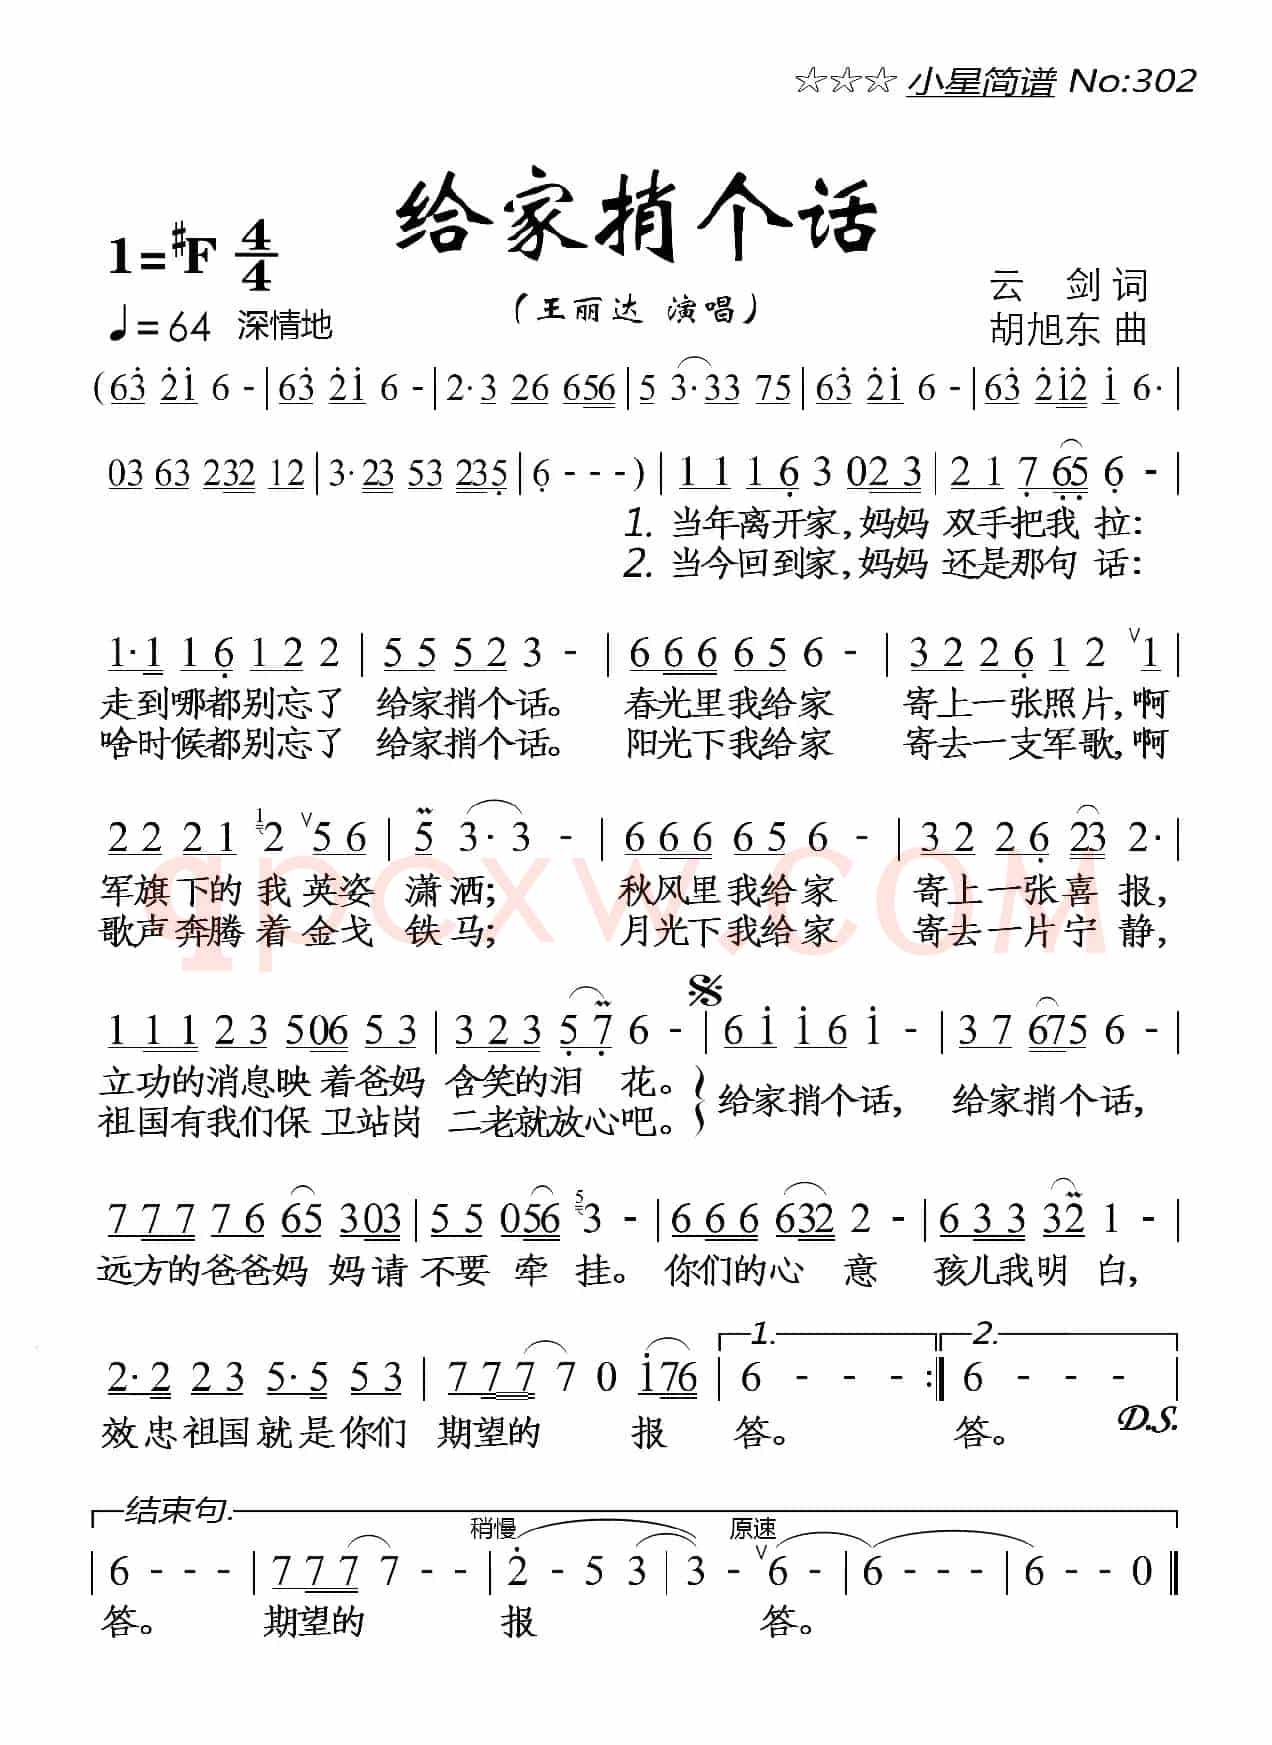 ☆☆☆ 小星简谱 No:302
给家捎个话
1=#F 4/4
(王丽达 演唱)
云 剑 词
♩=64 深情地
胡旭东 曲
(63 21 6 - |63 21 6 - |2·3 26 656|5 3·33 75|63 21 6 - |63 212 1 6·|
03 63 232 12|3·23 53 235|6 - - -)|1 1 1 6 3 02 3|2 1 7 65 6 -|
1. 当年离开家,妈妈 双手把我 拉:
2. 当今回到家,妈妈 还是那句 话:
1·1 1 6 1 2 2|5 5 5 2 3 -|6 6 6 6 5 6 -|3 2 2 6 1 2 ∨1|
走到哪都别忘了 给家捎个话。 春光里我给家 寄上一张照片,啊
啥时候都别忘了 给家捎个话。 阳光下我给家 寄去一支军歌,啊
2 2 2 1 1 2 ∨5 6|5 3·3 -|6 6 6 6 5 6 -|3 2 2 6 23 2·|
军旗下的 我 英姿 潇洒; 秋风里我给家 寄上一张喜 报,
歌声奔腾 着 金戈 铁马; 月光下我给家 寄去一片宁 静,
qpcxw.com
1 1 1 2 3 506 5 3|3 2 3 5 7 6 -|6 1 1 6 1 -|3 7 675 6 -|
立功的消息映 着爸妈 含笑的泪 花。 给家捎个话, 给家捎个话,
祖国有我们保 卫站岗 二老就放心吧。
7 7 7 7 6 65 303|5 5 056 5 3 -|6 6 6 632 2 -|6 3 3 32 1 -|
远方的爸爸妈 妈请 不要 牵 挂。 你们的心 意 孩儿我明 白,
1. 2.
2·2 2 3 5·5 5 3|7 7 7 7 7 0 176|6 - - - :|6 - - -|
效忠祖国就是你们 期望的 报 答。 答。 D.S.
结束句.
稍慢 原速
|6 - - -|7 7 7 7 7 - -|2 - 5 3|3 - ∨6 -|6 - - -|6 - - 0‖
答。 期望的 报 答。